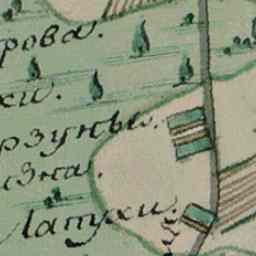 рова.
хи.
рзуны.
зна.
Лапухи.